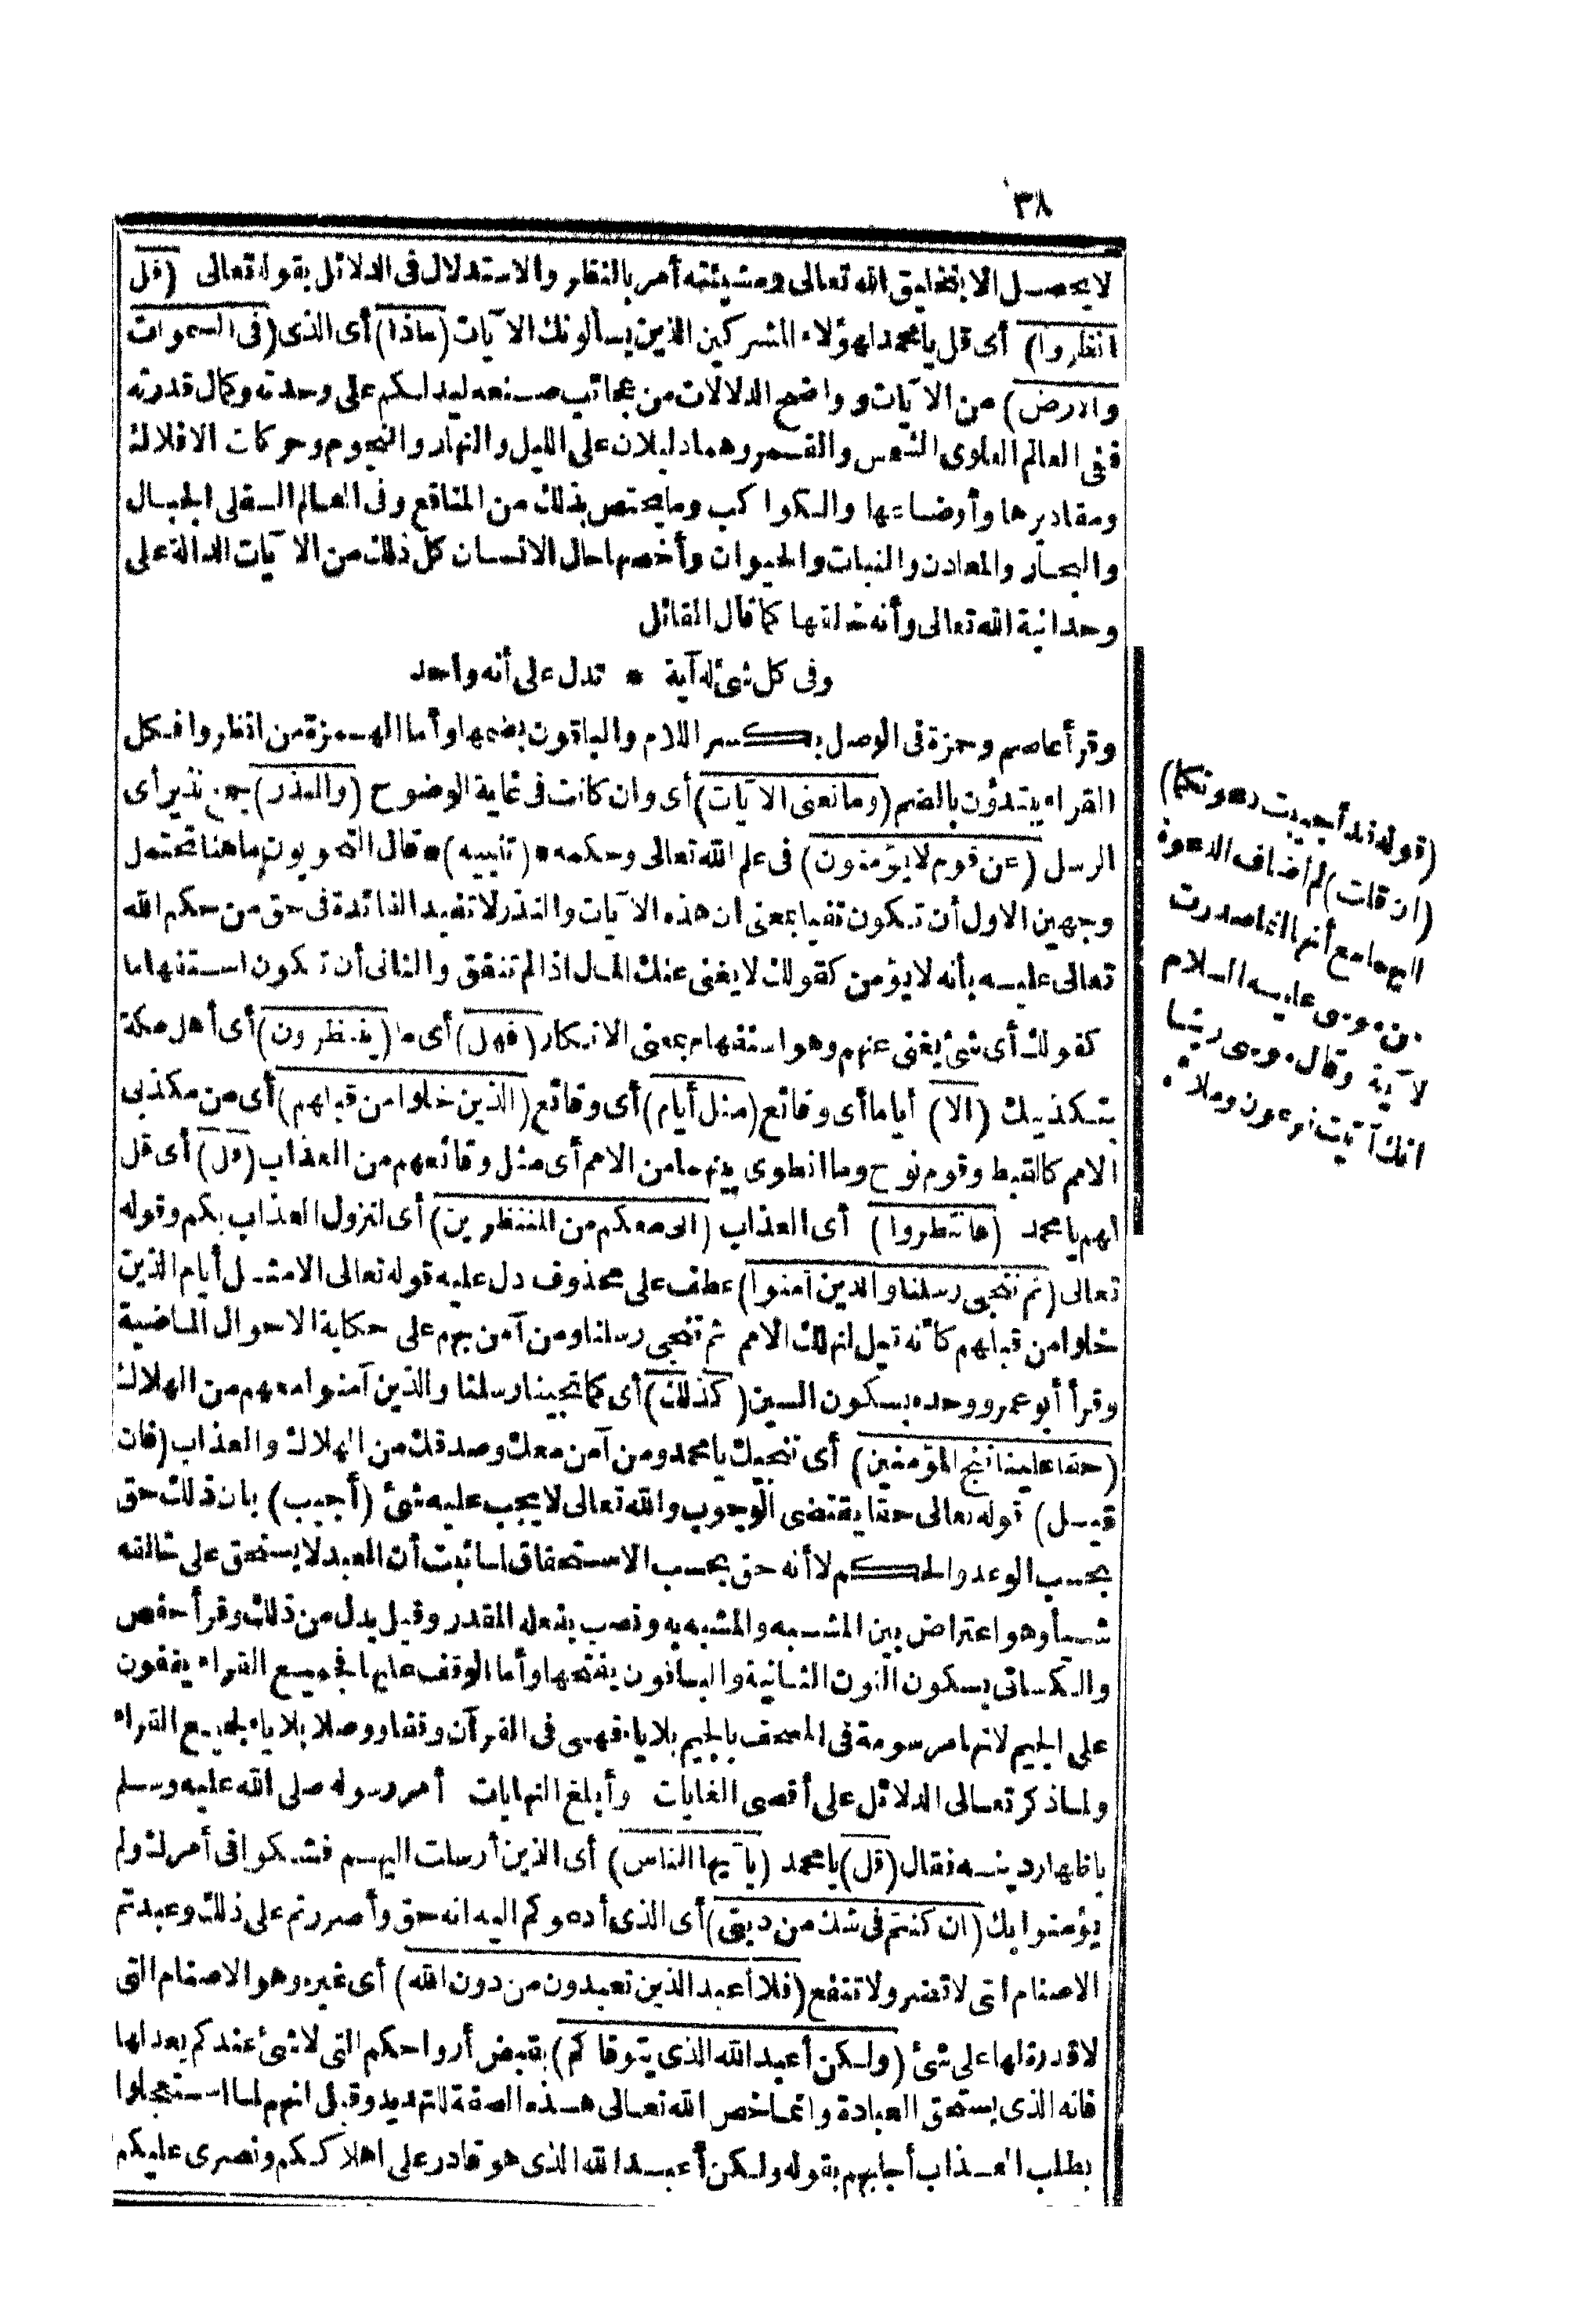 ٣٨
لا يحصل الا بتخليق الله تعالى ومشيئته أمر بالنظر والاستدلال فى الدلائل بقوله تعالى (قل
انظروا) أى قل يا محمد لهؤلاء المشركين الذين يسألونك الآيات (ماذا) أى الذى (فى السموات
والارض) من الآيات وواضح الدلالات من عجائب صنعه ليدلكم على وحدته وكمال قدرته
ففى العالم العلوى الشمس والقمر وهما دليلان على الليل والنهار والنجوم وحركات الافلاك
ومقاديرها وأوضاعها والكواكب وما يختص بذلك من المنافع وفى العالم السفلى الجبال
والبحار والمعادن والنبات والحيوان وأخصها حال الانسان كل ذلك من الآيات الدالة على
وحدانية الله تعالى وأنه خالقها كما قال القائل
وفى كل شئ له آية * تدل على أنه واحد
وقرأ عاصم وحمزة فى الوصل بكسر اللام والباقون بضمها وأما الهمزة من انظروا فكل
القراء يبتدؤن بالضم (وما تغنى الآيات) أى وان كانت فى غاية الوضوح (والنذر) جمع نذير أى
الرسل (عن قوم لا يؤمنون) فى علم الله تعالى وحكمه * (تنبيه) * قال النحويون ما هنا تحتمل
وجهين الاول أن تكون نفيا بمعنى ان هذه الآيات والنذر لا تفيد الفائدة فى حق من حكم الله
تعالى عليه بأنه لا يؤمن كقولك لا يغنى عنك المال اذا لم تنفق والثانى أن تكون استفهاما
كقولك أى شئ يغنى عنهم وهو استفهام بمعنى الانكار (فهل) أى ما (ينتظرون) أى أهل مكة
بتكذيبك (الا) أياما أى وقائع (مثل أيام) أى وقائع (الذين خلوا من قبلهم) أى من مكذبى
الامم كالقبط وقوم نوح وما انطوى بينهما من الامم أى مثل وقائعهم من العذاب (قل) أى قل
لهم يا محمد (فانتظروا) أى العذاب (انى معكم من المنتظرين) أى لنزول العذاب بكم وقوله
تعالى (ثم ننجى رسلنا والذين آمنوا) عطف على محذوف دل عليه قوله تعالى الا مثل أيام الذين
خلوا من قبلهم كأنه قيل لنهلك الامم ثم ننجى رسلنا ومن آمن بهم على حكاية الاحوال الماضية
وقرأ أبو عمرو وحده بسكون السين (كذلك) أى كما نجينا رسلنا والذين آمنوا معهم من الهلاك
(حقا علينا ننج المؤمنين) أى ننجيك يا محمد ومن آمن معك وصدقك من الهلاك والعذاب (فان
قيل) قوله تعالى حقا يقتضى الوجوب والله تعالى لا يجب عليه شئ (أجيب) بان ذلك حق
بحسب الوعد والحكم لا أنه حق بحسب الاستحقاق لما ثبت أن العبد لا يستحق على خالقه
شيأ وهو اعتراض بين المشبه والمشبه به ونصب بفعله المقدر وقيل بدل من ذلك وقرأ حفص
والكسائى بسكون النون الثانية والباقون بفتحها وأما الوقف عليها فجميع القراء يقفون
على الجيم لانها مرسومة فى المصحف بالجيم بلا ياء فهى فى القرآن وقفا ووصلا بلا ياء لجميع القراء
ولما ذكر تعالى الدلائل على أقصى الغايات وأبلغ النهايات أمر رسوله صلى الله عليه وسلم
باظهار دينه فقال (قل) يا محمد (يا أيها الناس) أى الذين أرسلت اليهم فشكوا فى أمرك ولم
يؤمنوا بك (ان كنتم فى شك من دينى) أى الذى أدعوكم اليه انه حق وأصررتم على ذلك وعبدتم
الاصنام التى لا تضر ولا تنفع (فلا أعبد الذين تعبدون من دون الله) أى غيره وهو الاصنام التى
لا قدرة لها على شئ (ولكن أعبد الله الذى يتوفاكم) بقبض أرواحكم التى لا شئ عندكم يعدلها
فانه الذى يستحق العبادة وانما خص الله تعالى هذه الصفة للتهديد وقيل انهم لما استعجلوا
بطلب العذاب أجابهم بقوله ولكن أعبد الله الذى هو قادر على اهلاككم ونصرى عليكم
(قوله قد أجيبت دعوتكما)
(ان قلت) لم أضاف الدعوة
اليهما مع أنها انما صدرت
من موسى عليه السلام
لآية وقال موسى ربنا
انك آتيت فرعون وملاه